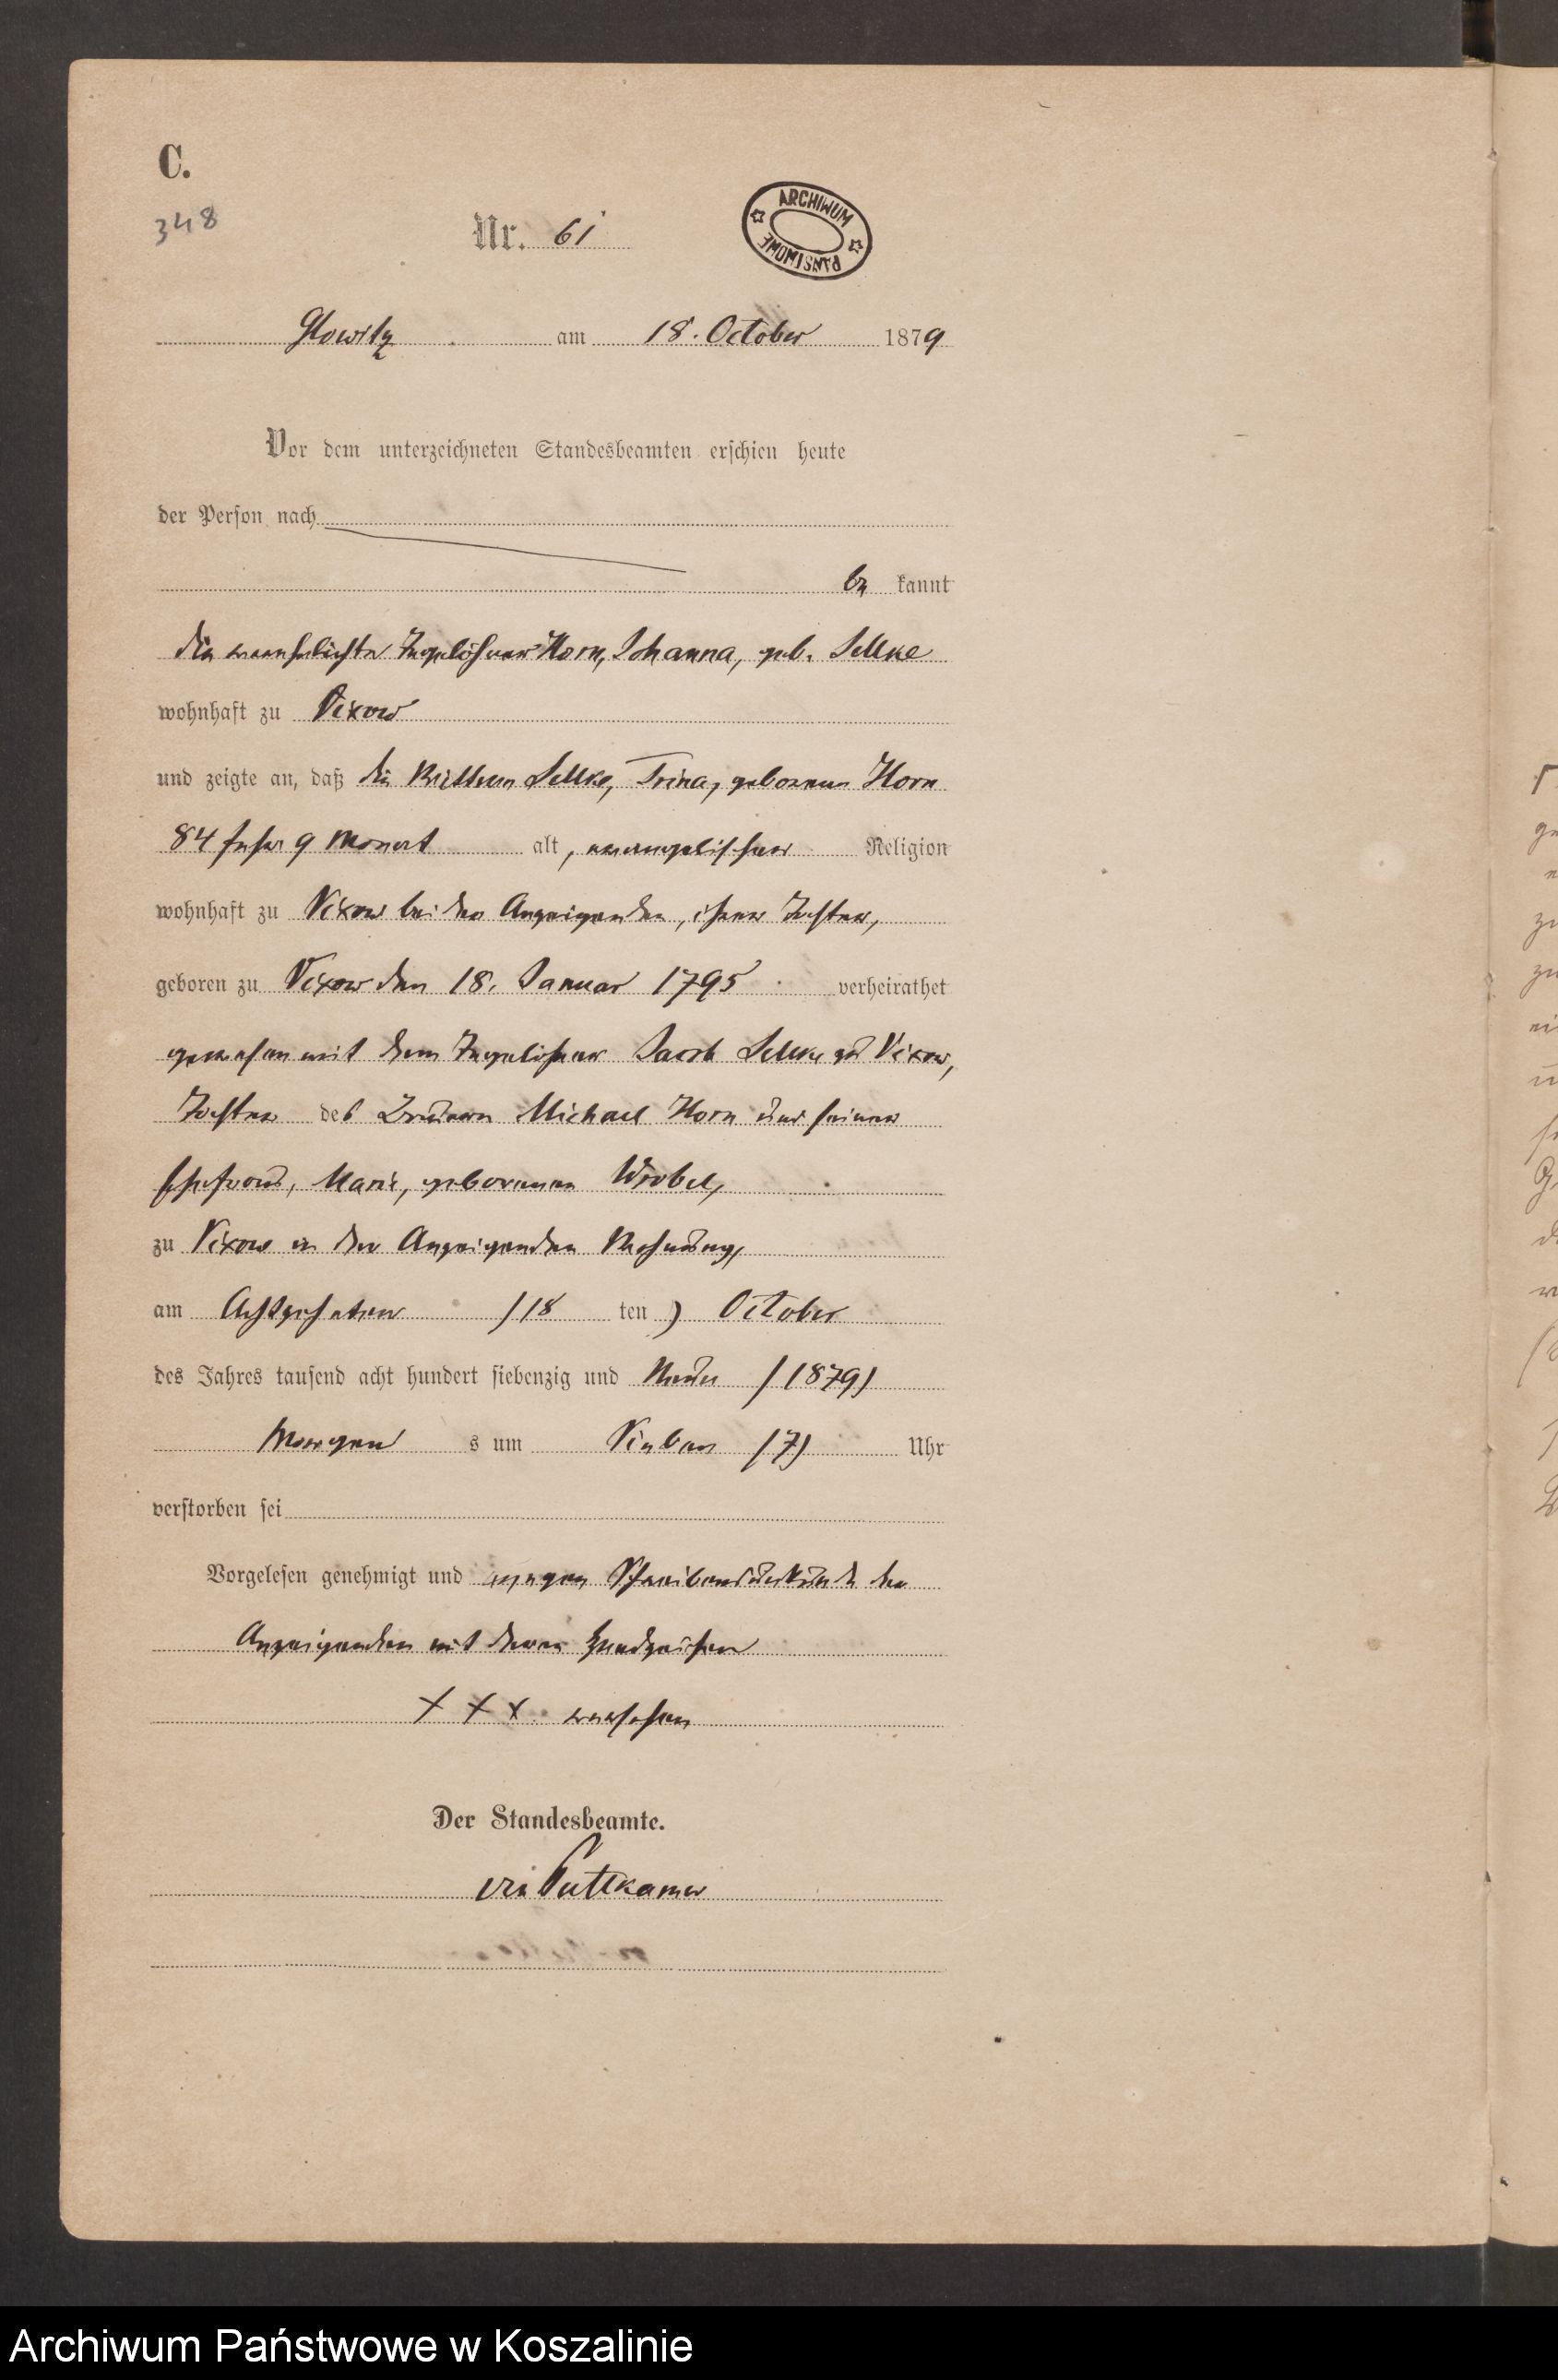 C.
348
Nr. 61
ARCHIWUM PAŃSTWOWE
Glowitz am 18. October 1879
Vor dem unterzeichneten Standesbeamten erschien heute
der Person nach
be kannt
die verehelichte Tagelöhner Horn, Johanna, geb. Sellke
wohnhaft zu Vixow
und zeigte an, daß die Wittwe Sellke, Trina, geborene Horn
84 Jahr 9 Monat alt, evangelischer Religion
wohnhaft zu Vixow bei der Anzeigenden, ihrer Tochter,
geboren zu Vixow den 18. Januar 1795 verheirathet
gewesen mit dem Tagelöhner Jacob Sellke zu Vixow,
Tochter des Michael Horn und seiner
Ehefrau, Marie, geborenen Wrobel,
zu Vixow in der Anzeigenden Wohnung,
am Achtzehnten (18 ten) October
des Jahres tausend acht hundert siebenzig und Neun (1879)
Morgen s um Sieben (7) Uhr
verstorben sei
Vorgelesen genehmigt und wegen Schreibensunkunde der
Anzeigenden mit deren Handzeichen
+ + + versehen
Der Standesbeamte.
von Puttkamer
Archiwum Państwowe w Koszalinie